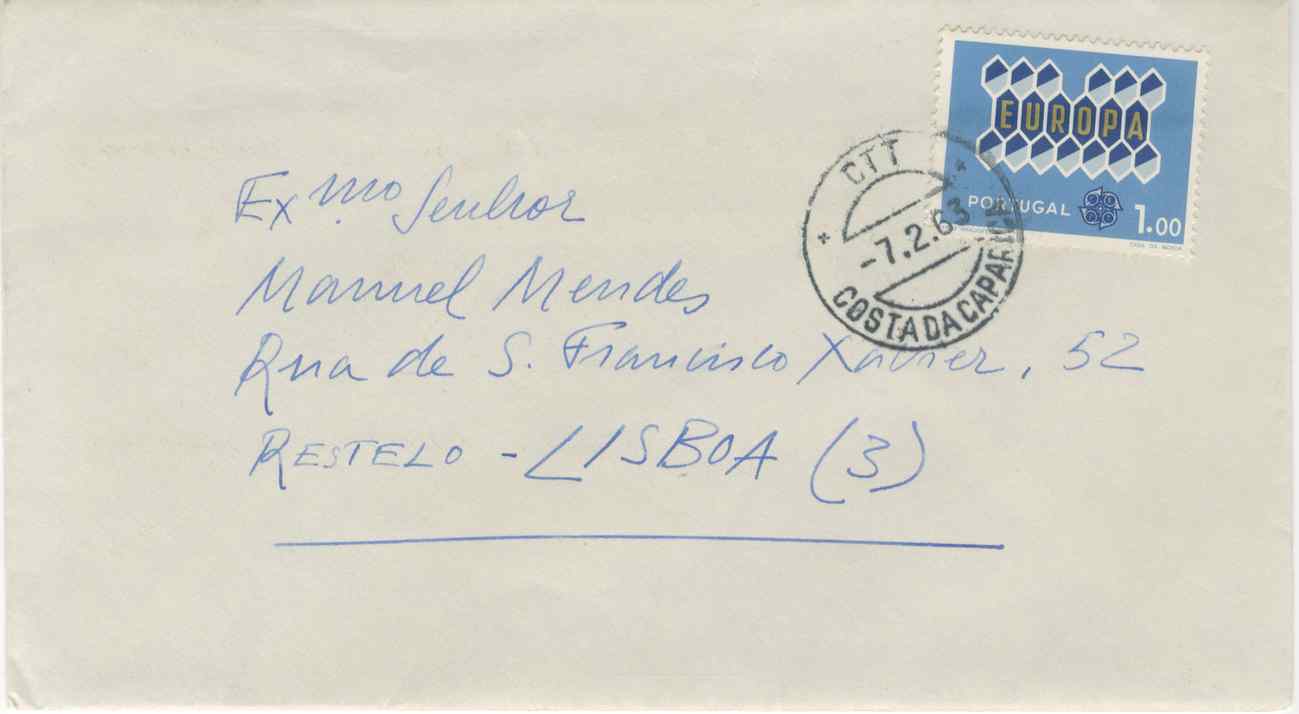 EUROPA
PORTUGAL 1.00
CTT
-7.2.63
COSTA DA CAPARICA
Exmo Senhor
Manuel Mendes
Rua de S. Francisco Xavier, 52
RESTELO - LISBOA (3)